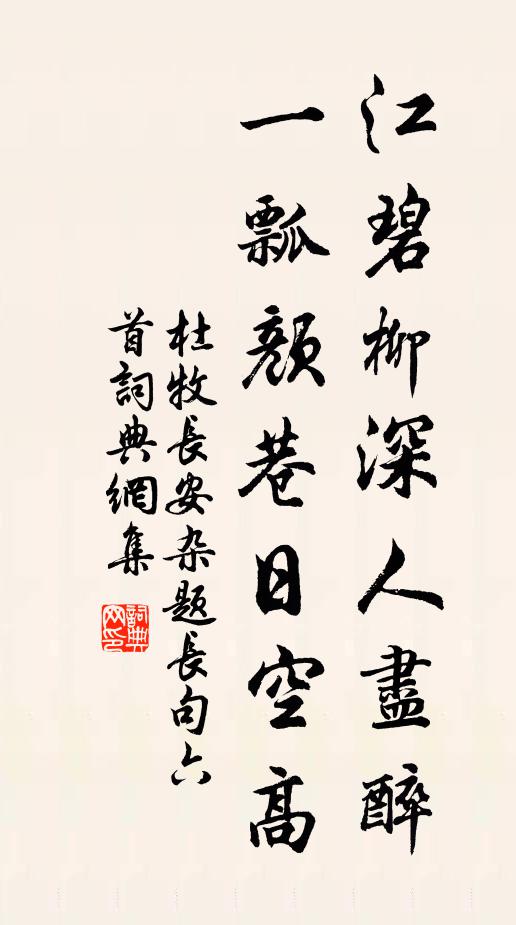 江碧柳深人盡醉
一瓢顏巷日空高
杜牧長安杂題長句六
首詞典網集
詞典網印